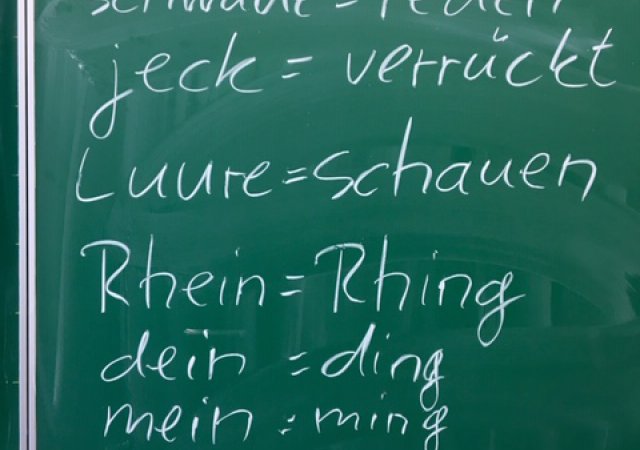 schwade = reden
jeck = verrückt
Luure = schauen
Rhein = Rhing
dein = ding
mein = ming